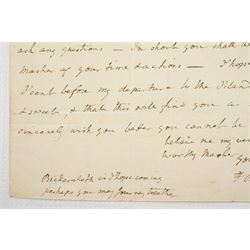 ask any questions — In short you shall be
master of your time & actions — I hope
I sent before my departure to the Island
& sweet, & that this note find you a
sincerely wish you better you cannot be
believe me my very
worthy
You
Bickersteth is I hope coming
perhaps you may journey together